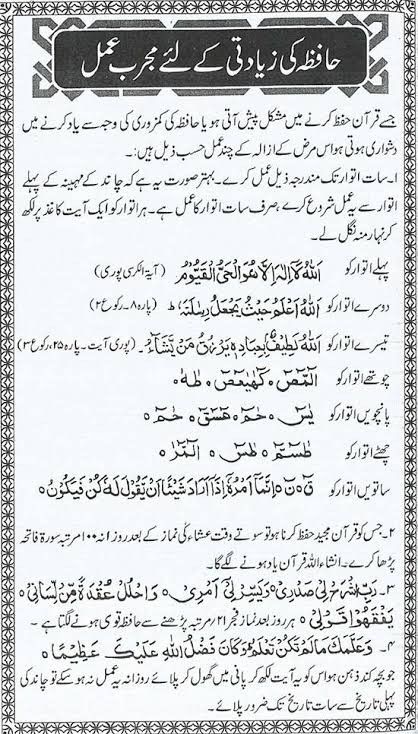 حافظہ کی زیادتی کے لئے مجرب عمل
جسے قرآن حفظ کرنے میں مشکل پیش آتی ہو یا حافظہ کی کمزوری کی وجہ سے یاد کرنے میں
دشواری ہوتی ہو اس مرض کے ازالہ کے چند عمل حسب ذیل ہیں:۔
۱۔ سات اتوار تک مندرجہ ذیل عمل کرے۔ بہتر صورت یہ ہے کہ چاند کے مہینہ کے پہلے
اتوار سے یہ عمل شروع کرے، صرف سات اتوار کا عمل ہے۔ ہر اتوار کو ایک آیت کاغذ پر لکھ
کر نہار منہ نگل لے۔
پہلے اتوار کو اَللهُ لَا اِلٰهَ اِلَّا هُوَ الْحَيُّ الْقَيُّوْمُ (آیۃ الکرسی پوری)
دوسرے اتوار کو اَللهُ اَعْلَمُ حَيْثُ يَجْعَلُ رِسٰلَتَهٗ ط (پارہ ۸۔ رکوع ۲)
تیسرے اتوار کو اَللهُ لَطِيْفٌۢ بِعِبَادِهٖ يَرْزُقُ مَنْ يَّشَآءُ۔ (پوری آیت۔ پارہ ۲۵، رکوع ۳)
چوتھے اتوار کو الٓمّٓصٓ ۝ كٓهٰيٰعٓصٓ ۝ طٰهٰ ۝
پانچویں اتوار کو يٰسٓ ۝ حٰمٓ ۝ عٓسٓقٓ ۝ حٰمٓ ۝
چھٹے اتوار کو طٰسٓمّٓ ۝ طٰسٓ ۝ الٓمّٓرٰ ۝
ساتویں اتوار کو قٓ ۝ نٓ ۝ اِنَّمَآ اَمْرُهٗٓ اِذَآ اَرَادَ شَيْئًا اَنْ يَّقُوْلَ لَهٗ كُنْ فَيَكُوْنُ ۝
۲۔ جس کو قرآن مجید حفظ کرنا ہو تو سوتے وقت عشاء کی نماز کے بعد روزانہ ۱۰۰ مرتبہ سورۃ فاتحہ
پڑھا کرے۔ انشاء اللہ قرآن یاد ہونے لگے گا۔
۳۔ رَبِّ اشْرَحْ لِيْ صَدْرِيْ ۝ وَيَسِّرْ لِيْٓ اَمْرِيْ ۝ وَاحْلُلْ عُقْدَةً مِّنْ لِّسَانِيْ ۝
يَفْقَهُوْا قَوْلِيْ ۝ ہر روز بعد نماز فجر ۲۱ مرتبہ پڑھنے سے حافظہ قوی ہونے لگتا ہے۔
۴۔ وَعَلَّمَكَ مَا لَمْ تَكُنْ تَعْلَمُ ط وَكَانَ فَضْلُ اللهِ عَلَيْكَ عَظِيْمًا ۝
جو بچہ کند ذہن ہو اس کو یہ آیت لکھ کر پانی میں گھول کر پلائے روزانہ یہ عمل نہ ہو سکے تو چاند کی
پہلی تاریخ سے سات تاریخ تک ضرور پلائے۔